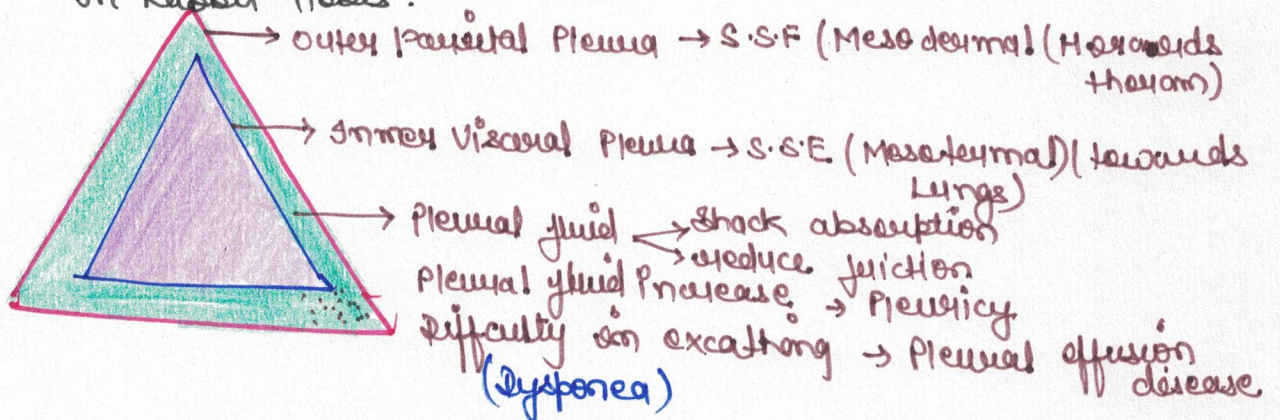 Outer Parietal Pleura → S.S.F (Mesodermal (Towards
thoram)
Inner Visceral Pleura → S.S.E. (Mesotermal) (towards
Lungs)
Pleural fluid → Shock absorption
→ reduce friction
Pleural fluid Increase → Pleuricy
Difficulty in → Pleural effusion
disease
(Dysponea)